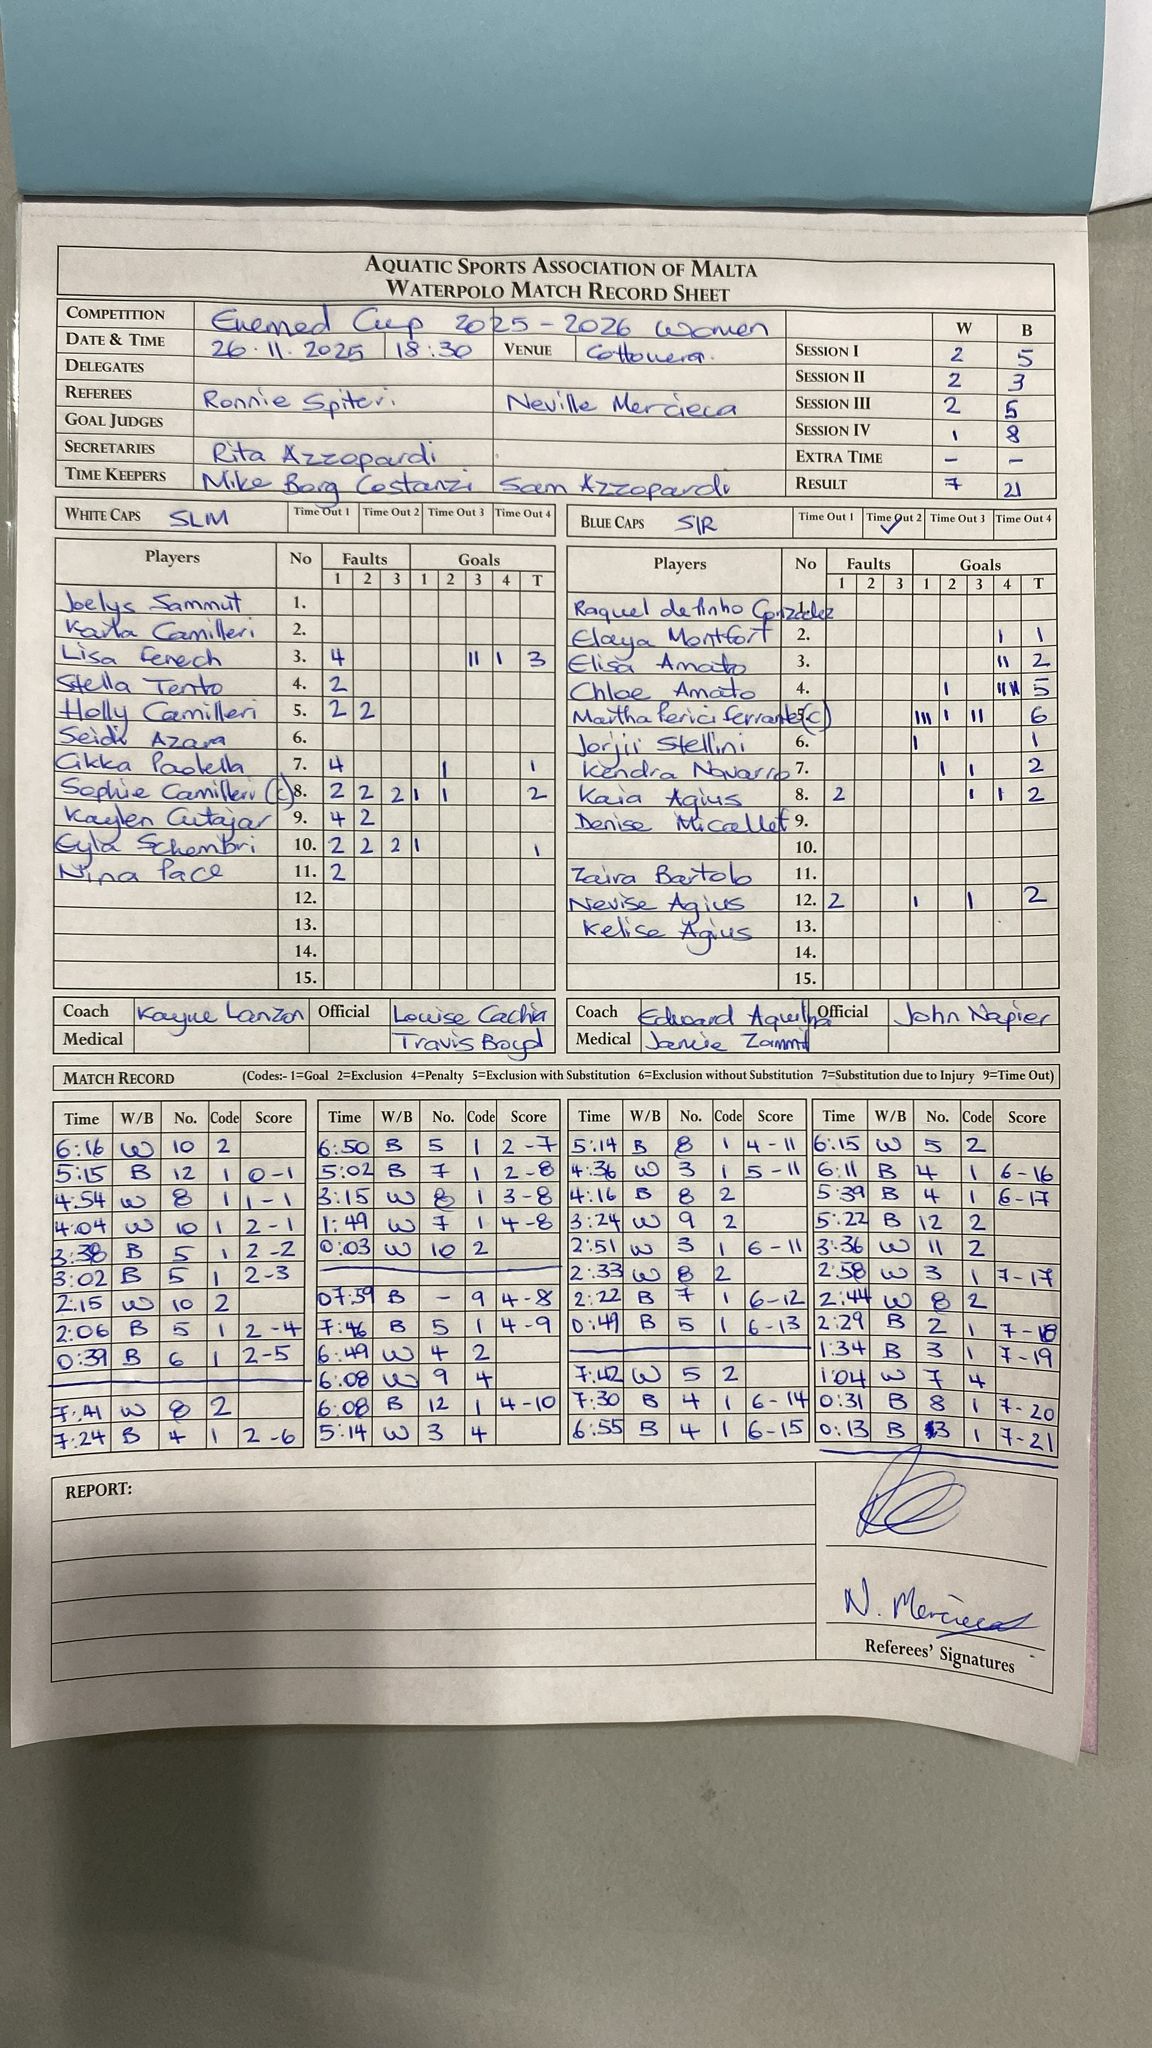 AQUATIC SPORTS ASSOCIATION OF MALTA
WATERPOLO MATCH RECORD SHEET
COMPETITION Enemed Cup 2025-2026 Women W B
DATE & TIME 26.11.2025 18:30 VENUE Cottonera. SESSION I 2 5
DELEGATES SESSION II 2 3
REFEREES Ronnie Spiteri Neville Mercieca SESSION III 2 5
GOAL JUDGES SESSION IV 1 8
SECRETARIES Rita Azzopardi EXTRA TIME - -
TIME KEEPERS Mike Borg Costanzi Sam Azzopardi RESULT 7 21
WHITE CAPS SLM Time Out 1 Time Out 2 Time Out 3 Time Out 4
Players No Faults Goals
1 2 3 1 2 3 4 T
Joelys Sammut 1.
Karla Camilleri 2.
Lisa Fenech 3. 4 II I 3
Stella Tento 4. 2
Holly Camilleri 5. 2 2
Azara 6.
Gikka Paolella 7. 4 I 1
Sophie Camilleri (c) 8. 2 2 2 I I 2
Kaylen Cutajar 9. 4 2
Eyla Schembri 10. 2 2 2 I 1
Nina Pace 11. 2
12.
13.
14.
15.
Coach Kayne Lanzon Official Louise Cachia
Medical Travis Boyd
BLUE CAPS SIR Time Out 1 Time Out 2 ✓ Time Out 3 Time Out 4
Players No Faults Goals
1 2 3 1 2 3 4 T
Raquel de Pinho Gonzalez 1.
Elaya Montfort 2. I 1
Elisa Amato 3. II 2
Chloe Amato 4. I IIII 5
Martha Perici Ferrante (c) 5. III I II 6
Jorjii Stellini 6. I 1
Kendra Navarro 7. I I 2
Kaia Agius 8. 2 I I 2
Denise Micallef 9.
10.
Zaira Bartolo 11.
Nevise Agius 12. 2 I I 2
Kelise Agius 13.
14.
15.
Coach Edward Aquilina Official John Napier
Medical Janice Zammit
MATCH RECORD (Codes:- 1=Goal 2=Exclusion 4=Penalty 5=Exclusion with Substitution 6=Exclusion without Substitution 7=Substitution due to Injury 9=Time Out)
Time W/B No. Code Score
6:16 W 10 2
5:15 B 12 1 0-1
4:54 W 8 1 1-1
4:04 W 10 1 2-1
3:38 B 5 1 2-2
3:02 B 5 1 2-3
2:15 W 10 2
2:06 B 5 1 2-4
0:39 B 6 1 2-5
7:41 W 8 2
7:24 B 4 1 2-6
Time W/B No. Code Score
6:50 B 5 1 2-7
5:02 B 7 1 2-8
3:15 W 8 1 3-8
1:49 W 7 1 4-8
0:03 W 10 2
07:59 B - 9 4-8
7:46 B 5 1 4-9
6:49 W 4 2
6:08 W 9 4
6:08 B 12 1 4-10
5:14 W 3 4
Time W/B No. Code Score
5:14 B 8 1 4-11
4:36 W 3 1 5-11
4:16 B 8 2
3:24 W 9 2
2:51 W 3 1 6-11
2:33 W 8 2
2:22 B 7 1 6-12
0:49 B 5 1 6-13
7:42 W 5 2
7:30 B 4 1 6-14
6:55 B 4 1 6-15
Time W/B No. Code Score
6:15 W 5 2
6:11 B 4 1 6-16
5:39 B 4 1 6-17
5:22 B 12 2
3:36 W 11 2
2:58 W 3 1 7-17
2:44 W 8 2
2:29 B 2 1 7-18
1:34 B 3 1 7-19
1:04 W 7 4
0:31 B 8 1 7-20
0:13 B 3 1 7-21
REPORT:
N. Mercieca
Referees' Signatures